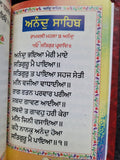 ਅਨੰਦੁ ਸਾਹਿਬ
ਰਾਮਕਲੀ ਮਹਲਾ ੩ ਅਨੰਦੁ
ੴ ਸਤਿਗੁਰ ਪ੍ਰਸਾਦਿ॥
ਅਨੰਦੁ ਭਇਆ ਮੇਰੀ ਮਾਏ
ਸਤਿਗੁਰੂ ਮੈ ਪਾਇਆ॥
ਸਤਿਗੁਰੁ ਤ ਪਾਇਆ ਸਹਜ ਸੇਤੀ
ਮਨਿ ਵਜੀਆ ਵਾਧਾਈਆ॥
ਰਾਗ ਰਤਨ ਪਰਵਾਰ ਪਰੀਆ
ਸਬਦ ਗਾਵਣ ਆਈਆ॥
ਸਬਦੋ ਤ ਗਾਵਹੁ ਹਰੀ ਕੇਰਾ
ਮਨਿ ਜਿਨੀ ਵਸਾਇਆ॥
ਕਹੈ ਨਾਨਕੁ ਅਨੰਦੁ ਹੋਆ
ਸਤਿਗੁਰੂ ਮੈ ਪਾਇਆ॥੧॥